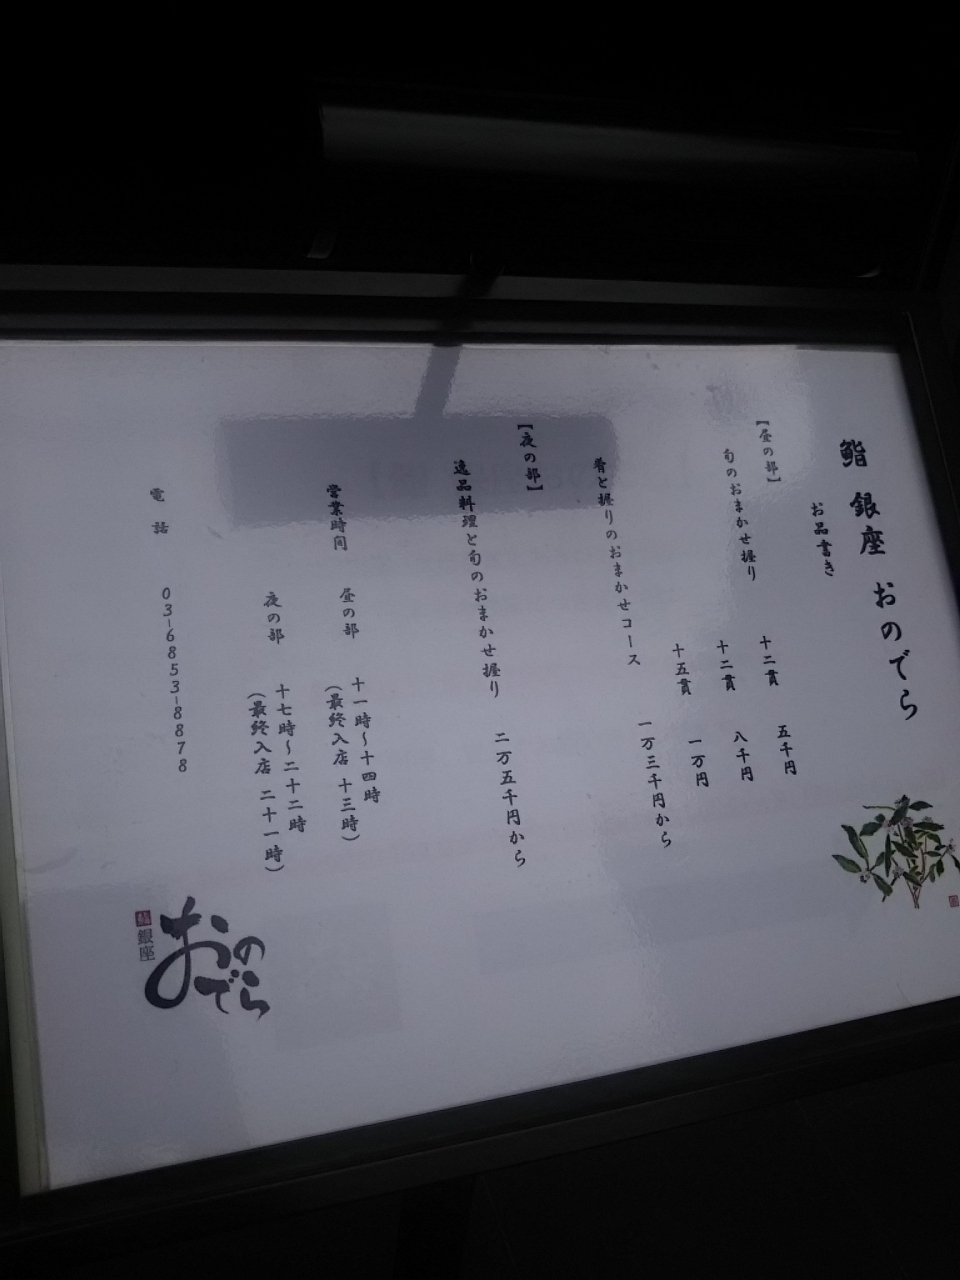 鮨 銀座 おのでら
お品書き
【昼の部】
旬のおまかせ握り 十二貫 五千円
十二貫 八千円
十五貫 一万円
肴と握りのおまかせコース 一万三千円から
【夜の部】
逸品料理と旬のおまかせ握り 二万五千円から
営業時間 昼の部 十一時～十四時
（最終入店 十三時）
夜の部 十七時～二十二時
（最終入店 二十一時）
電話 03-6853-8878
鮨 銀座
おのでら